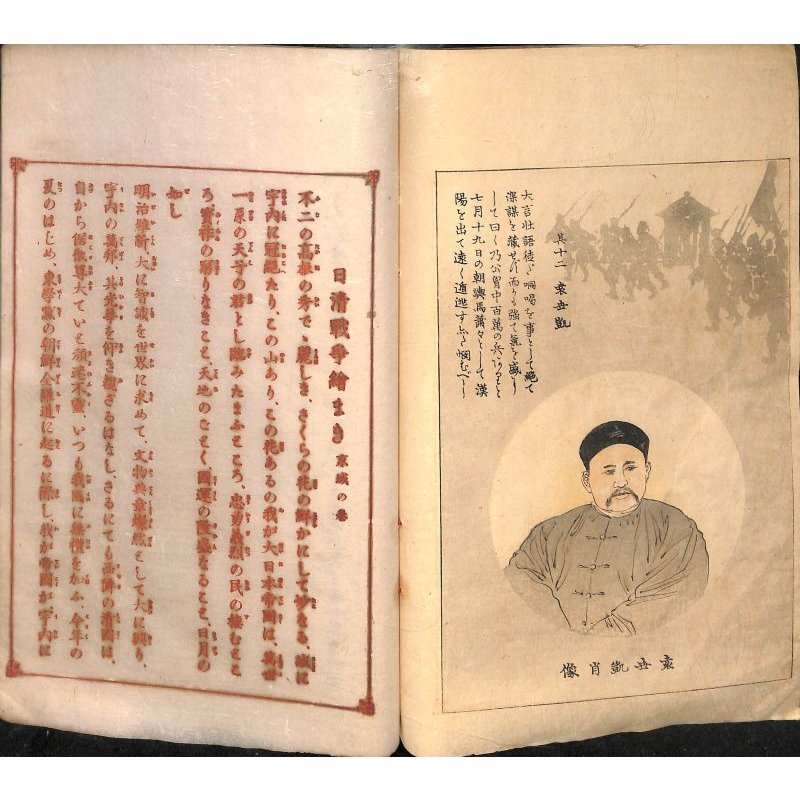 其十二 袁世凱
大言壮語徒に恫喝を事として絶て
深謀を蔵せず而かも強て気を盛り
して曰く乃公胃中百萬の兵ありと
七月十九日の朝輿馬蕭々として漢
陽を出て遠く遁逃す
袁世凱肖像
日清戦争繪まき 京城の巻
不二の高根の秀で、麗しき、さくらの花の鮮かにして妙なる、誠に
宇内に冠絶たり、この山あり、この花あるの我が大日本帝国は、萬世
一系の天子の君とし臨みたまふところ、忠勇義烈の民の棲むところ
寶祚の窮りなきこと、天地のごとく、國運の隆盛なること、日月の
如し
明治維新、大に智識を世界に求めて、文物典章燦然として大に興り、
宇内の萬邦、其光華を仰き観ざるはなし、さるにても西隣の清國は、
自から倨傲尊大、ていと頑迷不靈、いつも我國に無禮をかふ、今年の
夏のはじめ、東學黨の朝鮮全羅道に起るに際し、我が帝國が宇内に